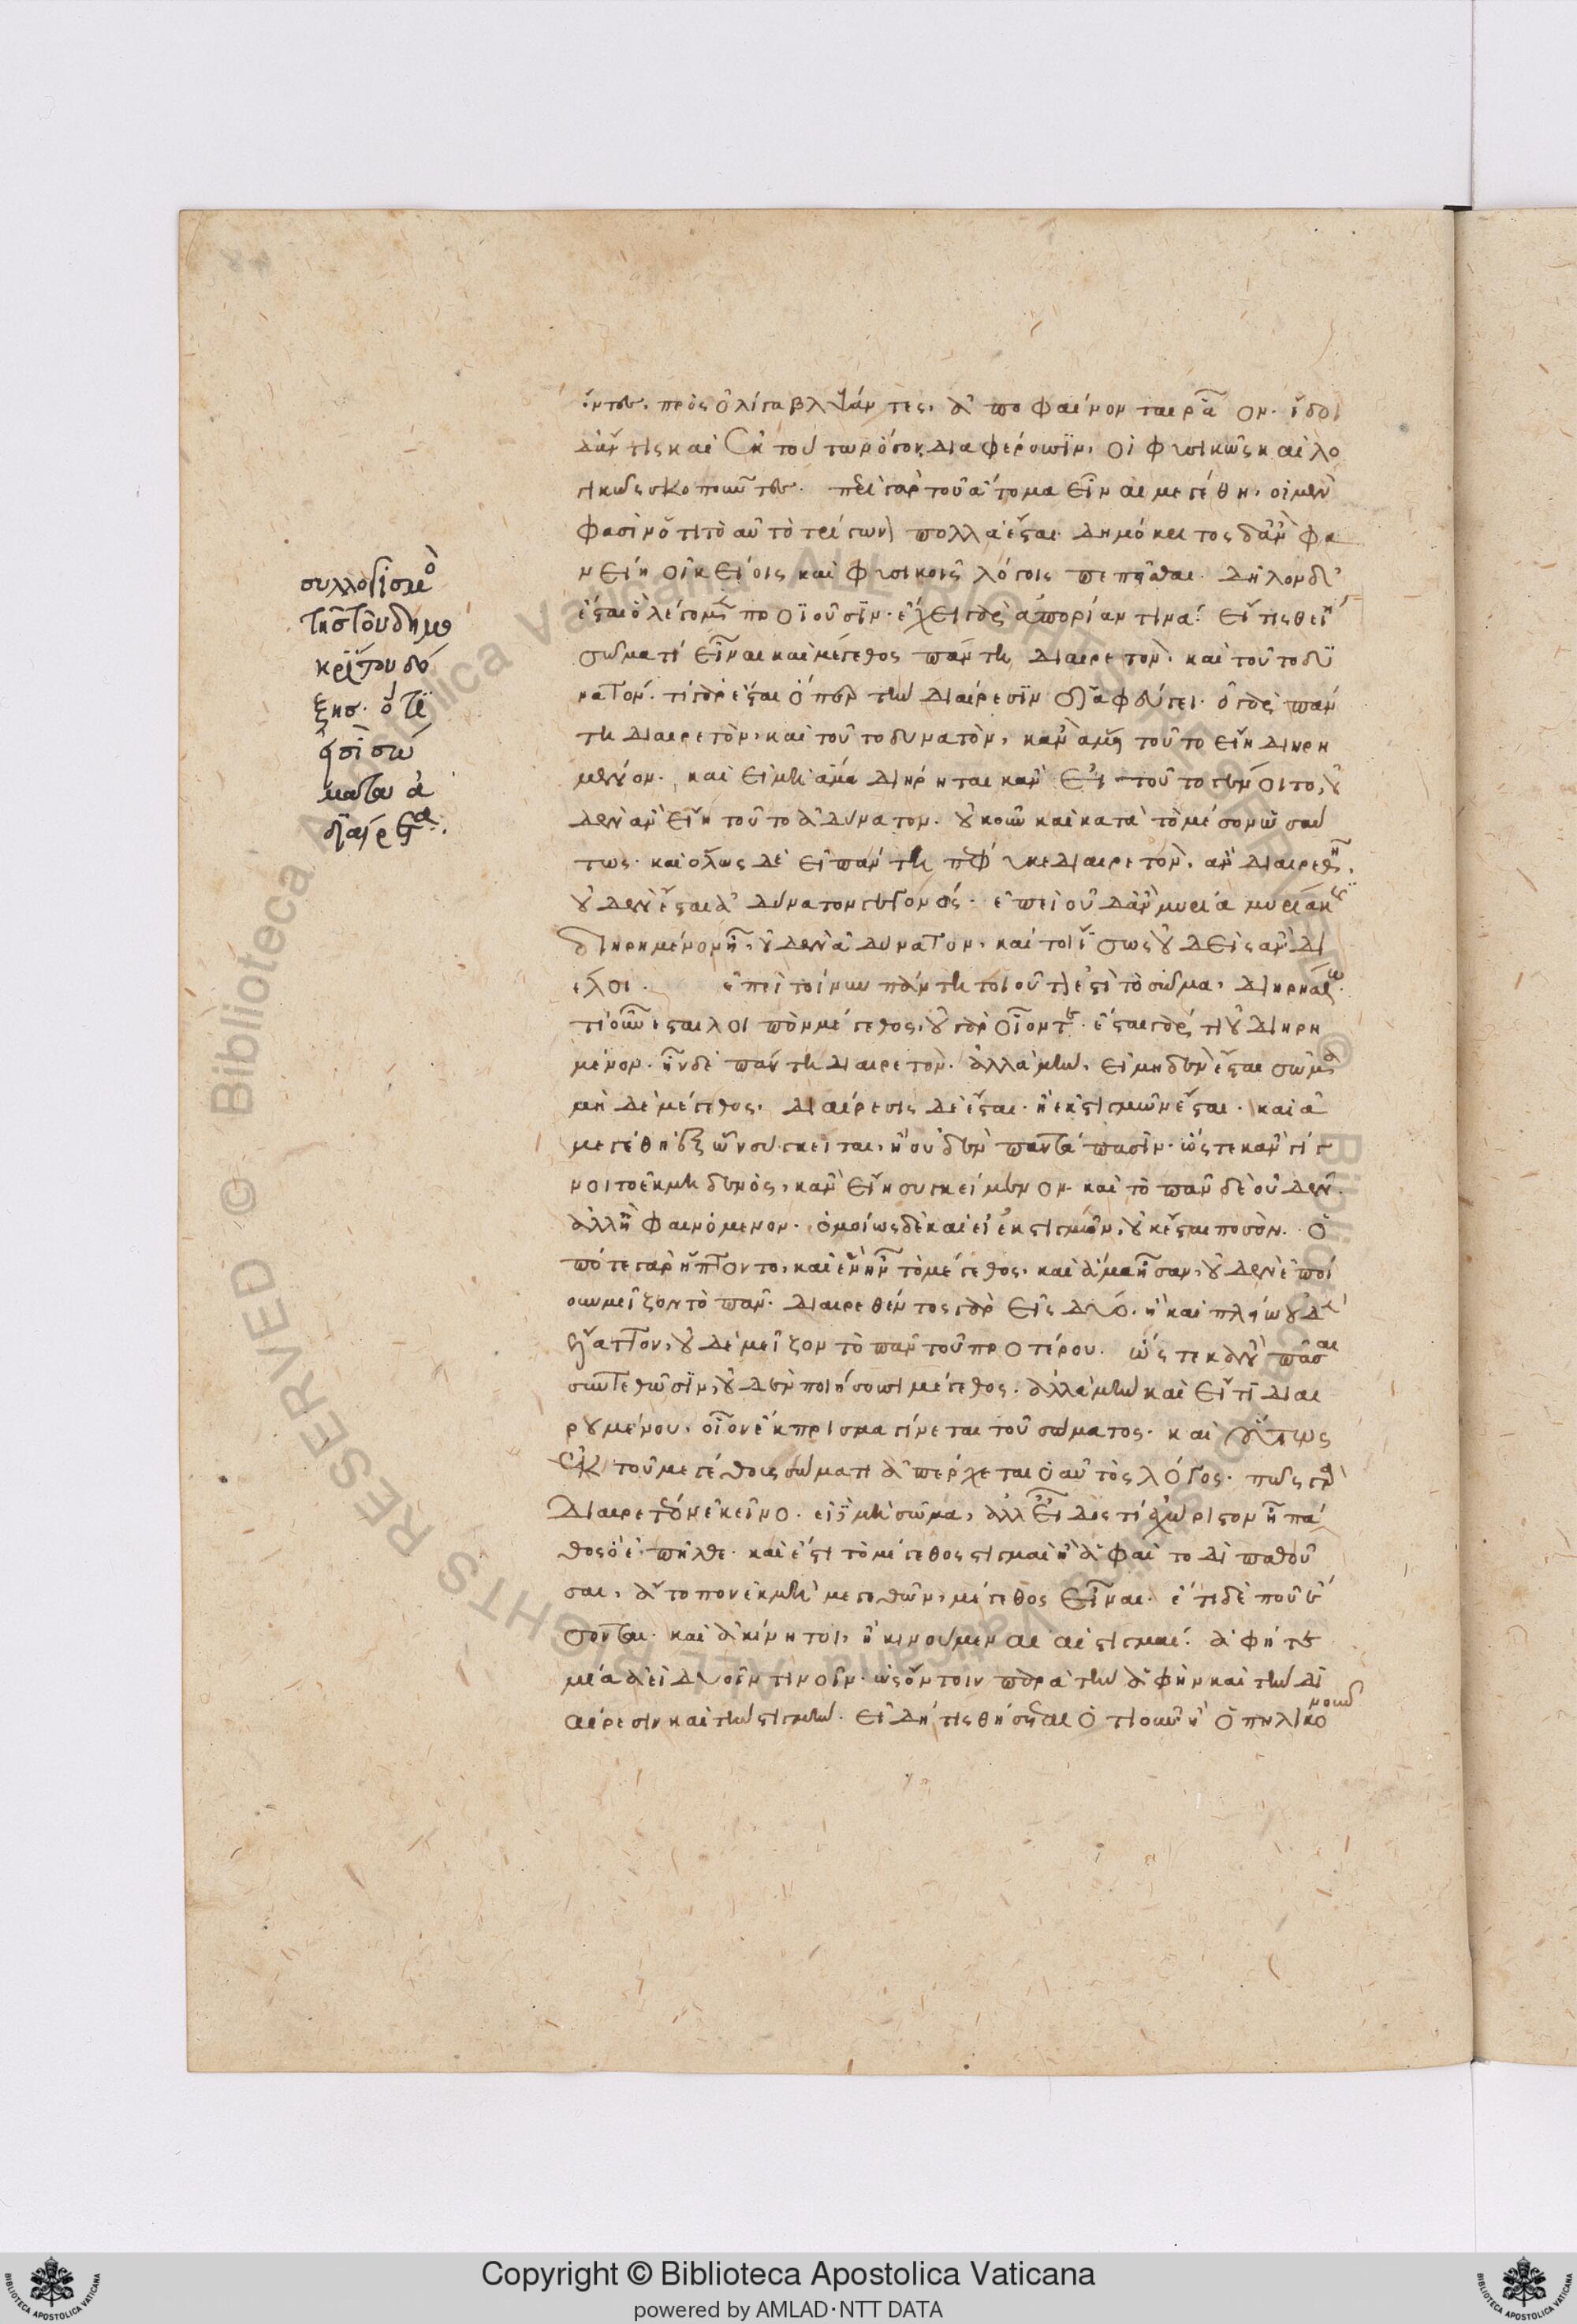 όντες, πρὸς ὀλίγα βλέψάντες, ἀποφαίνονται ρᾶον. ἴδοι
δἄν τις καὶ ἐκ τούτων ὅσον διαφέρουσϊν, οἱ φυσικῶς καὶ λο
γικῶς σκοποῦντες. περὶ γὰρ τοῦ ἄτομα εἶναι μεγέθη, οἱ μὲν
φασὶν ὅτι τὸ αὐτὸ τρίγωνον πολλὰ ἔσται. Δημόκριτος δἂν φα
νείη οἰκείοις καὶ φυσικοῖς λόγοις πεπεῖσθαι. δῆλον δ'
ἔσται ὃ λέγομεν προϊοῦσϊν. ἔχει γὰρ ἀπορίαν τινά. εἴ τις θείη
σῶμα τί εἶναι καὶ μέγεθος πάντη διαιρετὸν. καὶ τοῦτο δϋ
νατόν. τί γὰρ ἔσται ὅπερ τὴν διαίρεσϊν διαφεύγει. ὁ γὰρ πάν
τη διαιρετὸν, καὶ τοῦτο δυνατὸν, κἂν ἅμα τοῦτο εἴη διηρη
μένον. καὶ εἰ μὴ ἅμα διήρηται κἂν εἰ τοῦτο γένοιτο, οὐ
δὲν ἂν εἴη τοῦτο ἀδύνατον. οὐκοῦν καὶ κατὰ τὸ μέσον ὡσαύ
τως. καὶ ὅλως δὲ εἰ πάντη πέφυκε διαιρετὸν, ἂν διαιρεθῆ.
οὐδὲν ἔσται ἀδύνατον γεγονός. ἐπεὶ οὐδἂν μυρία μυριάκις
διηρημένον ἦ, οὐδὲν ἀδύνατον, καίτοι ἴσως οὐδεὶς ἂν δι
έλοι. ἐπεὶ τοίνυν πάντη τοιοῦτο ἐστὶ τὸ σῶμα, διηρήσθω.
τί οὖν ἔσται λοιπὸν μέγεθος, οὐ γὰρ οἷόν τε. ἔσται γάρ τι οὐ διηρη
μένον. ἦν δὲ πάντη διαιρετὸν. ἀλλὰ μὴν, εἰ μηδὲν ἔσται σῶμα
μὴ δὲ μέγεθος. διαίρεσις δὲ ἔσται. ἢ ἐκ στιγμῶν ἔσται. καὶ ἀ
μεγέθη ἐξ ὧν σύγκειται, ἢ οὐδὲν παντάπασϊν. ὥστε κἂν γίγ
νοιτο ἐκ μὴ δενὸς, κἂν εἴη συγκείμενον. καὶ τὸ πᾶν δὲ οὐδὲν.
ἀλλ' ἢ φαινόμενον. ὁμοίως δὲ καὶ εἰ ἐκ στιγμῶν, οὐκ ἔσται ποσόν. ὁ
πότε γὰρ ἥπτοντο, καὶ ἓν ἦν τὸ μέγεθος, καὶ ἅμα ἦσαν, οὐδὲν ἐποί
ουν μεῖζον τὸ πᾶν. διαιρεθέντος γὰρ εἰς δύο. ἢ καὶ πλείω οὐδὲν
ἔλαττον, οὐδὲ μεῖζον τὸ πᾶν τοῦ προτέρου. ὥστε κἂν πᾶσαι
συντεθῶσϊν, οὐδὲν ποιήσουσι μέγεθος. ἀλλὰ μὴν καὶ εἴ τι διαι
ρουμένου, οἷον ἔκπρισμα γίνεται τοῦ σώματος. καὶ οὕτως
ἐκ τοῦ μεγέθους σῶμα τι ἀπέρχεται ὁ αὐτὸς λόγος. πῶς γὰρ
διαιρετὸν ἐκεῖνο. εἰ μὴ σῶμα, ἀλλ' εἶδος τί χωριστὸν ἢ πά
θος ὃ ἀπῆλθε. καὶ ἔστι τὸ μέγεθος στιγμαὶ ἢ ἁφαὶ τοδὶ παθοῦ
σαι, ἄτοπον ἐκ μὴ μεγεθῶν, μέγεθος εἶναι. ἔτι δὲ ποῦ ἔ
σονται. καὶ ἀκίνητοι, ἢ κινούμεναι αἱ στιγμαί. ἁφή τε
μία ἀεὶ δυοῖν τινοῖν. ὡς ὄντοιν παρὰ τὴν ἁφὴν καὶ τὴν δι
αίρεσιν καὶ τὴν στιγμὴν. εἰ δή τις θήσεται ὁτιοῦν ἢ ὁπηλικονοῦν
συλλογισμὸ
τῆς τοῦ δημο
κρίτου δό
ξης. ὅτι
εἰσὶ σώ
ματα ἀ
διαίρετα.
Copyright © Biblioteca Apostolica Vaticana
powered by AMLAD·NTT DATA